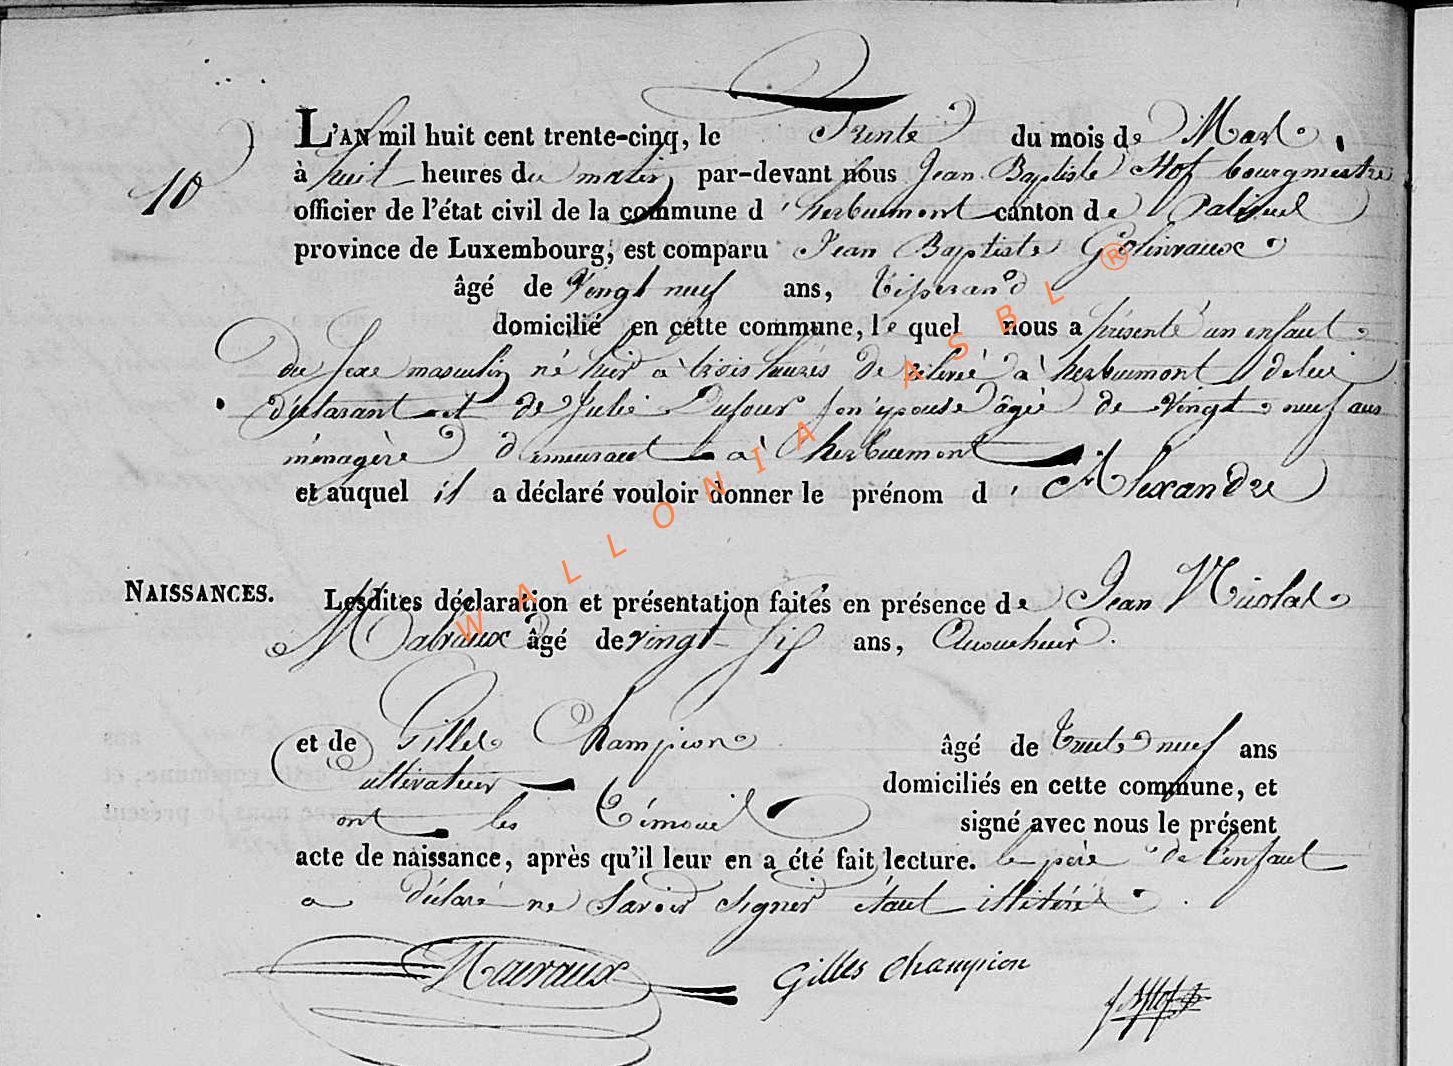 L'AN mil huit cent trente-cinq, le Trente du mois de Mars
10
à huit heures du matin par-devant nous Jean Baptiste Hof bourgmestre
officier de l'état civil de la commune d'herbeumont canton de Paliseul
province de Luxembourg, est comparu Jean Baptiste Golinvaux
âgé de Vingt neuf ans, Tisserand
domicilié en cette commune, le quel nous a présenté un enfant
du sexe masculin né hier à trois heures de relevée à herbeumont de lui
déclarant et de Julie Dufour son épouse âgée de Vingt neuf ans
ménagère demeurant à herbeumont
et auquel il a déclaré vouloir donner le prénom d'Alexandre
NAISSANCES.
Lesdites déclaration et présentation faites en présence de Jean Nicolas
âgé de vingt six ans,
et de Gilles Champion âgé de Trente neuf ans
Cultivateur domiciliés en cette commune, et
ont les Témoins signé avec nous le présent
acte de naissance, après qu'il leur en a été fait lecture. le père de l'enfant
a déclaré ne Savoir Signer étant illitéré
Gilles Champion
WALLONIA ASBL ®